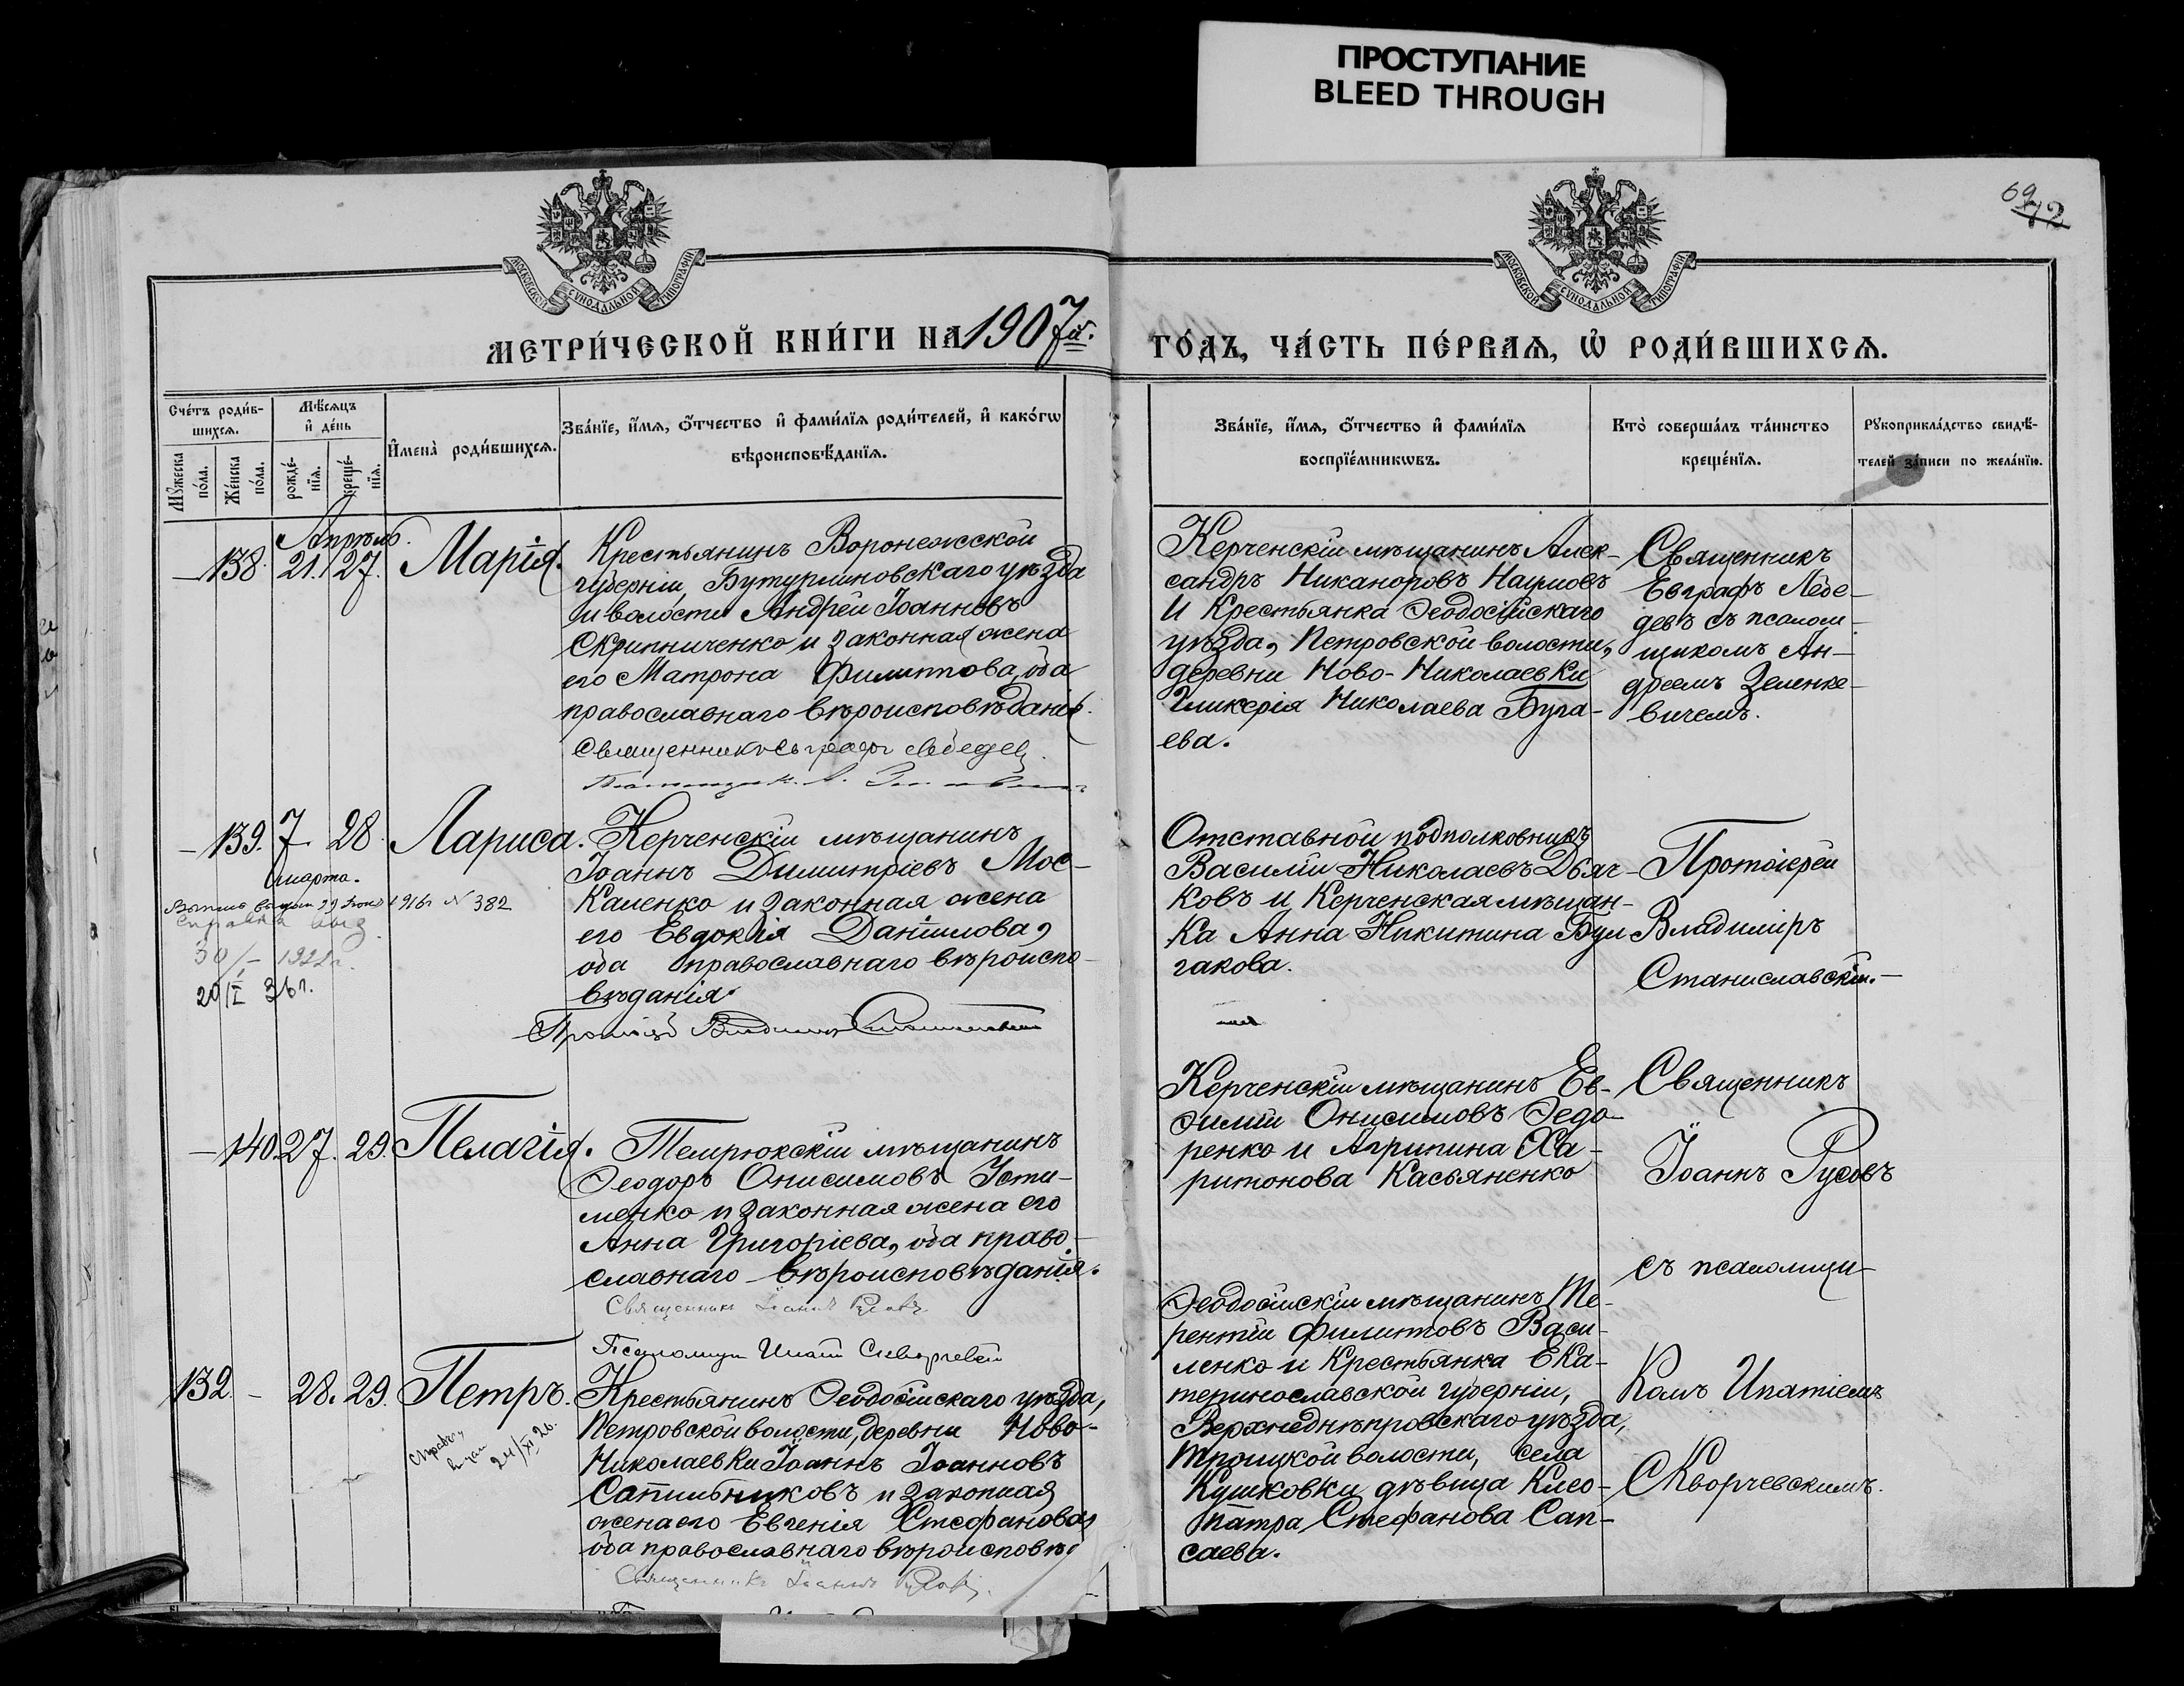 ПРОСТУПАНИЕ
BLEED THROUGH
69
72
МОСКОВСКОЙ СѴНОДАЛЬНОЙ ТИПОГРАФІИ
МОСКОВСКОЙ СѴНОДАЛЬНОЙ ТИПОГРАФІИ
МЕТРИ́ЧЕСКОЙ КНИ́ГИ НА 1907й.
ГО́ДЪ, ЧА́СТЬ ПЕ́РВАЯ, Ѽ РОДИ́ВШИХСЯ.
Сче́тъ роди́в-
шихся.
Мѣ́сяцъ
и҆ де́нь
Мꙋ́жеска
по́ла.
Же́нска
по́ла.
рожде́-
нїя.
креще́-
нїя.
И҆мена̀ роди́вшихся.
Зва́нїе, и҆́мя, ѻ҆́тчество и҆ фами́лїя роди́телей, и҆ како́гѡ
вѣроисповѣ́данїя.
Зва́нїе, и҆́мя, ѻ҆́тчество и҆ фами́лїя
воспрїе́мникѡвъ.
Кто̀ соверша́лъ та́инство
креще́нїя.
Рꙋкоприкла́дство свидѣ́-
телей за́писи по жела́нїю.
Апрѣль.
— 138. 21. 27. Марія.
Крестьянинъ Воронежской
губерніи, Бутурлиновскаго уѣзда
и волости Андрей Іоанновъ
Скрипниченко и законная жена
его Матрона Филиппова, оба
православнаго вѣроисповѣданія.
Священникъ Евграфъ Лебедев
Керченскій мѣщанинъ Алек-
сандръ Никаноровъ Наумовъ
и Крестьянка Ѳеодосійскаго
уѣзда, Петровской волости,
деревни Ново-Николаевки
Гликерія Николаева Буга-
ева.
Священникъ
Евграфъ Лебе-
девъ съ псалом-
щикомъ Ан-
дреемъ Зеленке-
вичемъ.
— 139. 7. 28. Лариса.
марта.
1916г № 382
30/– 1922г.
20/I 36г.
Керченскій мѣщанинъ
Іоаннъ Димитріевъ Мос-
каленко и законная жена
его Евдокія Даніилова,
оба православнаго вѣроиспо-
вѣданія.
Протоіерей Владиміръ Станиславскій
Отставной подполковникъ
Василій Николаевъ Дьяч-
ковъ и Керченская мѣщан-
ка Анна Никитина Бул
гакова.
Протоіерей
Владиміръ
Станиславскій.—
— 140. 27. 29. Пелагія.
Темрюкскій мѣщанинъ
Ѳеодоръ Онисимовъ Усти-
менко и законная жена его
Анна Григоріева, оба право-
славнаго вѣроисповѣданія.
Священникъ Іоаннъ Русовъ
Псаломщ Ипатій Скворчевскій
Керченскій мѣщанинъ Ев-
ѳимій Онисимовъ Ѳедо-
ренко и Агрипина Ха-
ритонова Касьяненко
Священникъ
Іоаннъ Русовъ
съ псаломщи-
132. — 28. 29. Петръ.
24/XI 26.
Крестьянинъ Ѳеодосійскаго уѣзда,
Петровской волости, деревни Ново-
Николаевки Іоаннъ Іоанновъ
Сапильниковъ и законная
жена его Евгенія Стефанова,
оба православнаго вѣроисповѣд
Священникъ Іоаннъ Русовъ.
Ѳеодосійскій мѣщанинъ Те-
рентій Филипповъ Васи-
ленко и Крестьянка Ека-
теринославской губерніи,
Верхнеднѣпровскаго уѣзда,
Троицкой волости, села
Кушковки дѣвица Клео-
патра Стефанова Сап-
саева.
комъ Ипатіемъ
Скворчевскимъ.